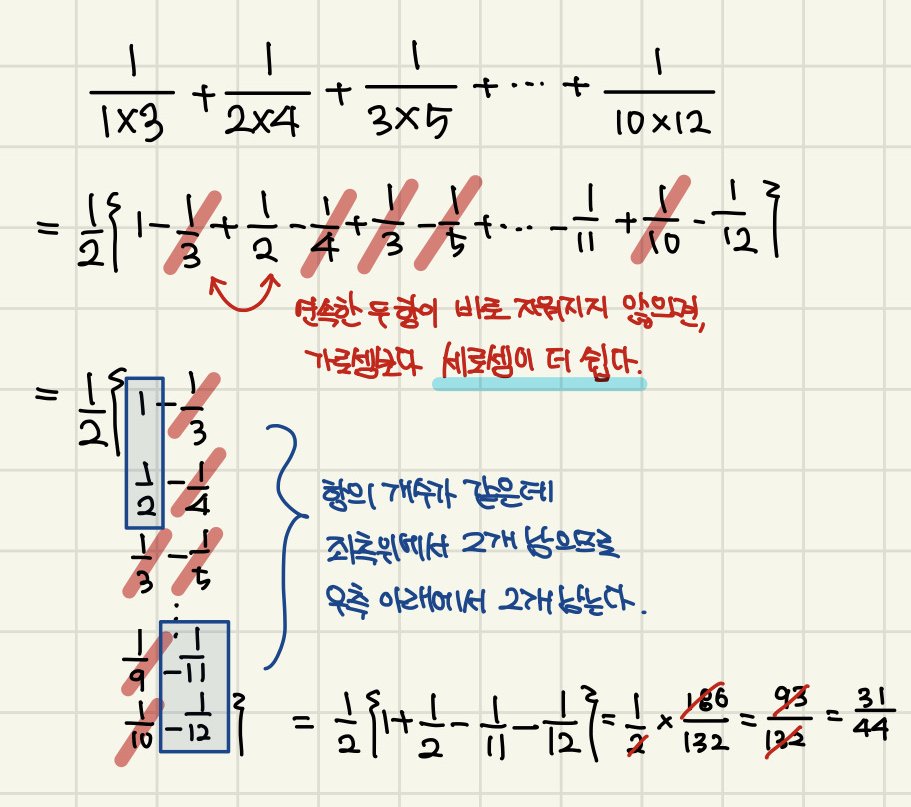 1/(1×3) + 1/(2×4) + 1/(3×5) + ⋯ + 1/(10×12)
= 1/2 { 1 - 1/3 + 1/2 - 1/4 + 1/3 - 1/5 + ⋯ - 1/11 + 1/10 - 1/12 }
연속한 두 항이 바로 지워지지 않으면,
가로셈보다 세로셈이 더 쉽다.
= 1/2 { 1 - 1/3
1/2 - 1/4
1/3 - 1/5
⋮
1/9 - 1/11
1/10 - 1/12 }
항의 개수가 같은데
좌측위에서 2개 남으므로
우측 아래에서 2개 남는다.
= 1/2 { 1 + 1/2 - 1/11 - 1/12 } = 1/2 × 186/132 = 93/132 = 31/44